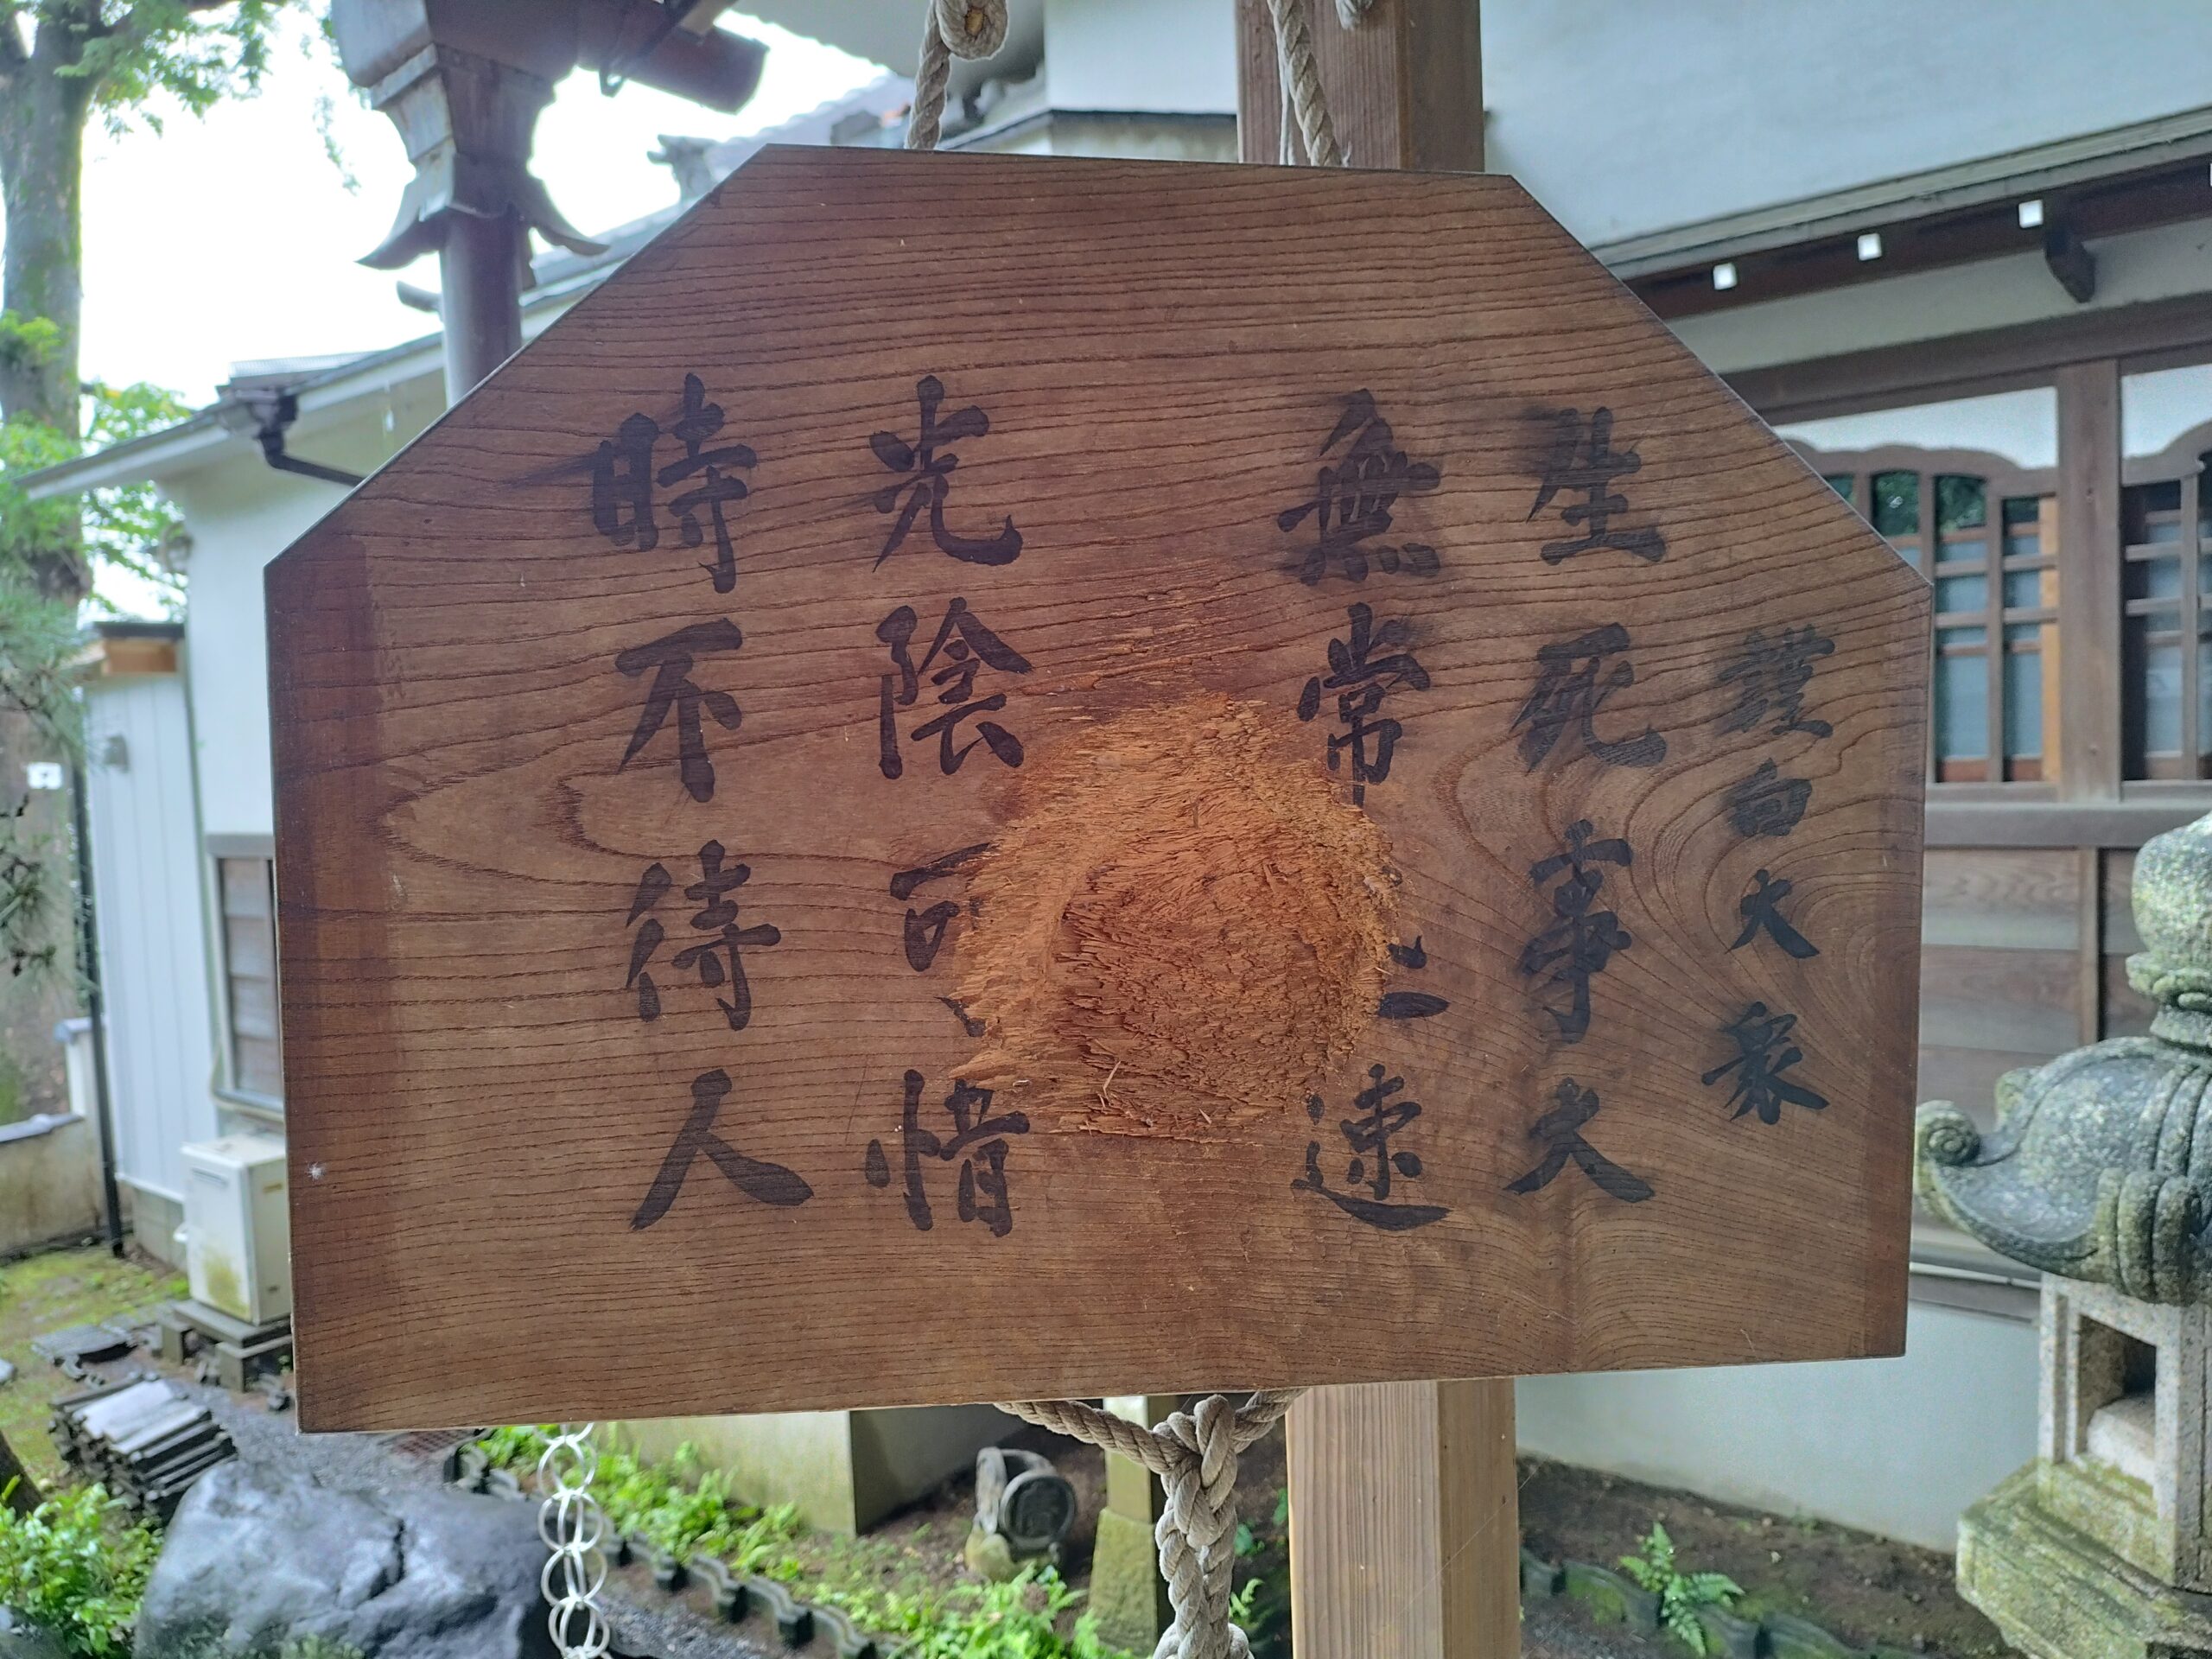 謹白大衆
生死事大
無常速
光陰可惜
時不待人